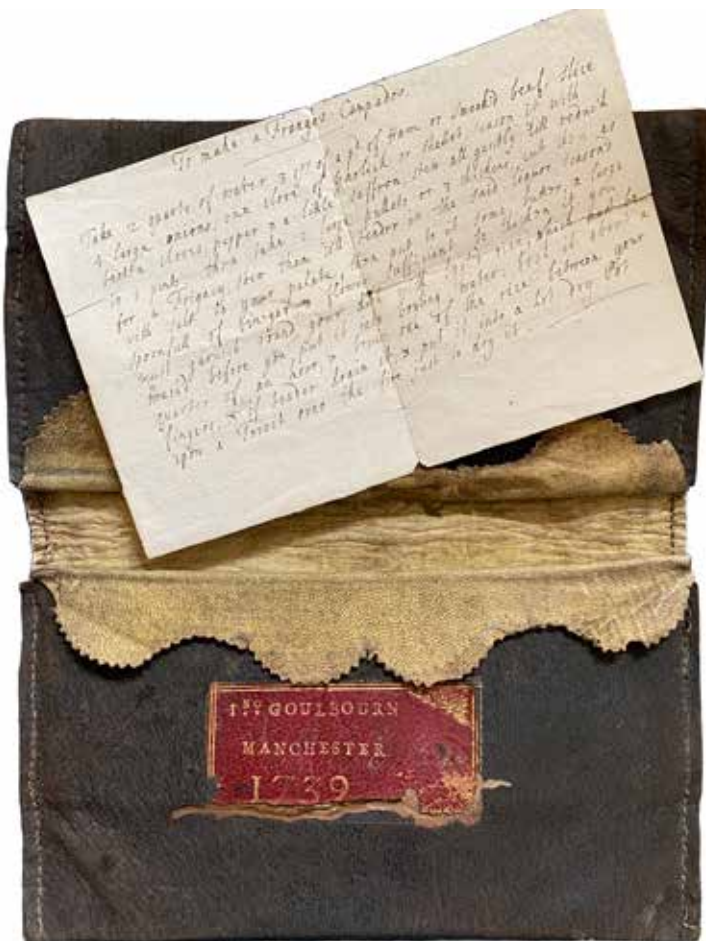 To make a Frangas Campados.
Take 2 quarts of water 3 qrs of a pd of Ham or smoak'd beef, slice
4 large onions, one clove of Garlick or shalot season it with
beaten cloves, pepper & a little saffron, stew all gently till reduc'd
to 1 pint, then take 2 large pullets or 3 chickens, cut 'em as
for a Frigacy, stew them till tender in the said liquor season'd
with salt to your palate, then put to it some butter, a large
spoonfull of vinegar & flower sufficient to thicken it, you
must garnish round your dish with rice, which must be
wash'd before you put it into boyling water, boyl it about a
quarter of an hour & bruise one of the rice between your
fingers, & if tender drain it & put it into a hot dry pot
upon a Trivet over the fire just to dry it.
GOULBOURN
MANCHESTER
1739